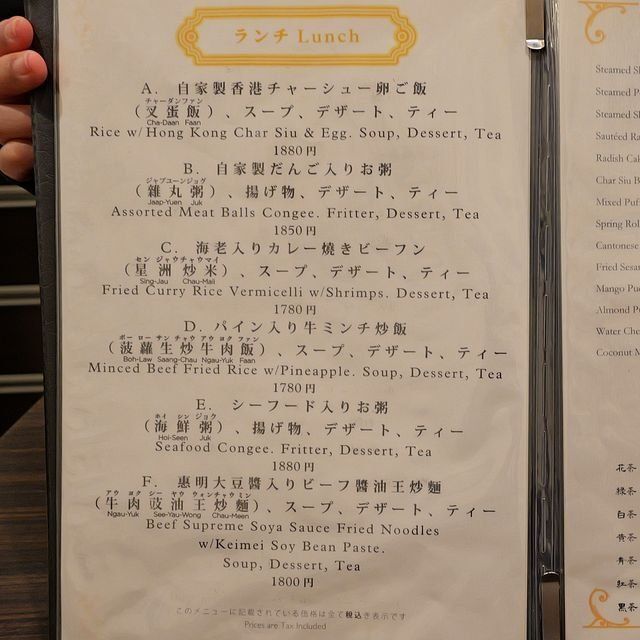 ランチ Lunch
A. 自家製香港チャーシュー卵ご飯
チャーダンファン
(叉蛋飯)、スープ、デザート、ティー
Cha-Daan Faan
Rice w/Hong Kong Char Siu & Egg. Soup, Dessert, Tea
1880円
B. 自家製だんご入りお粥
ジャプユーンジョグ
(雜丸粥)、揚げ物、デザート、ティー
Jaap-Yuen Juk
Assorted Meat Balls Congee. Fritter, Dessert, Tea
1850円
C. 海老入りカレー焼きビーフン
セン ジャウチャウマイ
(星洲炒米)、スープ、デザート、ティー
Sing-Jau Chau-Mali
Fried Curry Rice Vermicelli w/Shrimps. Dessert, Tea
1780円
D. パイン入り牛ミンチ炒飯
ボー ロー サン チャウ アウ ヨク ファン
(菠蘿生炒牛肉飯)、スープ、デザート、ティー
Boh-Law Saang-Chau Ngau-Yuk Faan
Minced Beef Fried Rice w/Pineapple. Soup, Dessert, Tea
1780円
E. シーフード入りお粥
ホイ シン ジョウ
(海鮮粥)、揚げ物、デザート、ティー
Hoi-Seen Juk
Seafood Congee. Fritter, Dessert, Tea
1880円
F. 惠明大豆醬入りビーフ醬油王炒麵
アウ ヨク シー ヤウ ウォンチャウミン
(牛肉豉油王炒麵)、スープ、デザート、ティー
Ngau-Yuk See-Yau-Wong Chau-Meen
Beef Supreme Soya Sauce Fried Noodles
w/Keimei Soy Bean Paste.
Soup, Dessert, Tea
1800円
このメニューに記載されている価格は全て税込き表示です
Prices are Tax Included
Steamed
Steamed
Steamed
Sautéed
Radish
Char Siu
Mixed
Spring
Cantonese
Fried
Mango
Almond
Water
Coconut
花茶
綠茶
白茶
黄茶
青茶
紅茶
黒茶